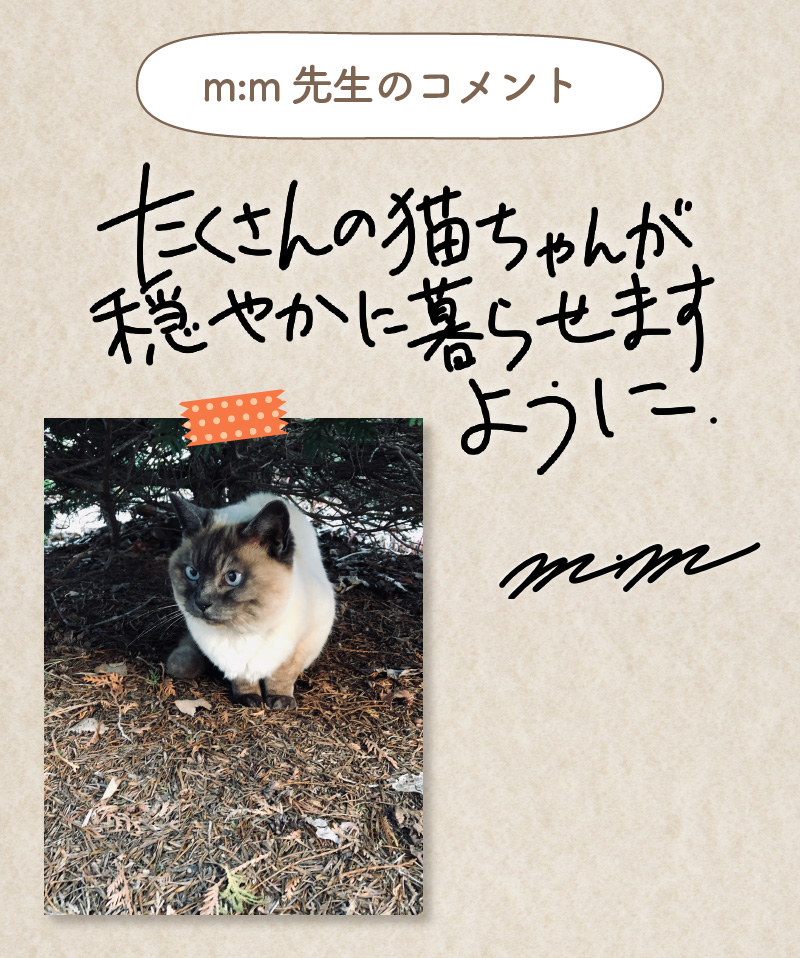 m:m 先生のコメント
たくさんの猫ちゃんが
穏やかに暮らせます
ように.
m:m